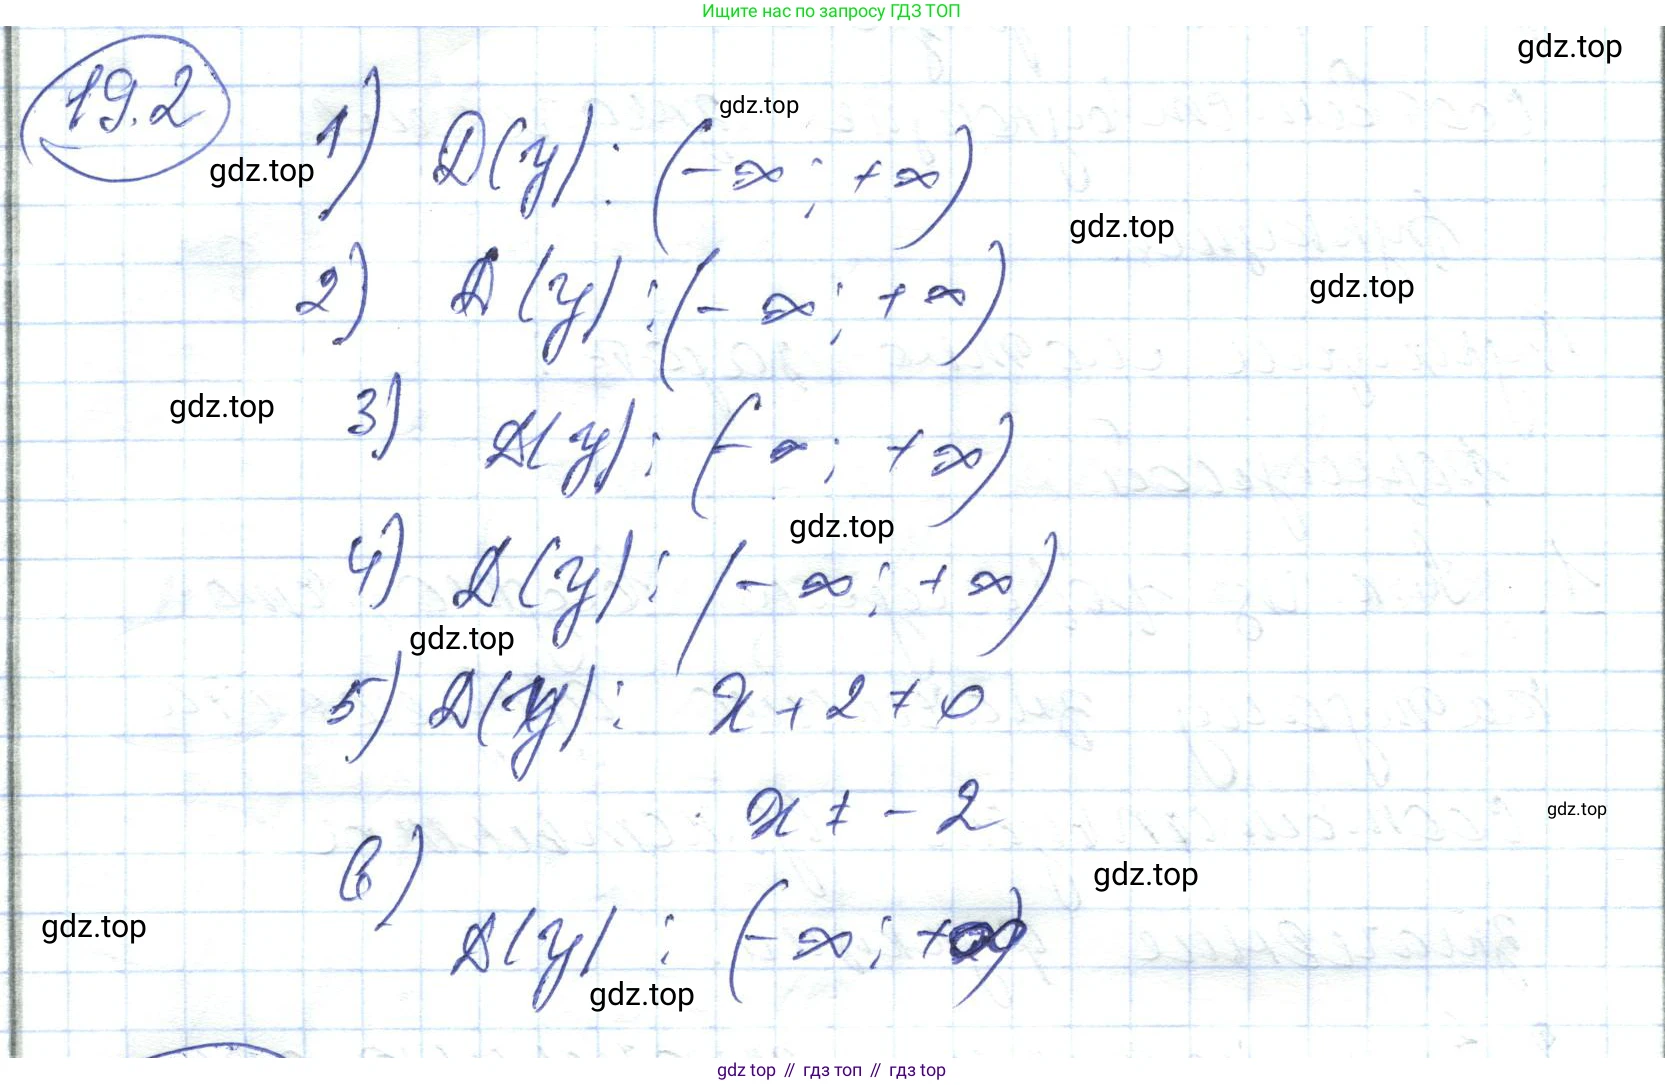 Ищите нас по запросу ГДЗ ТОП
gdz.top
19.2
1) D(y): (-∞; +∞)
gdz.top
gdz.top
gdz.top
2) D(y): (-∞; +∞)
gdz.top
gdz.top
3) D(y): (-∞; +∞)
gdz.top
4) D(y): (-∞; +∞)
gdz.top
5) D(y): x + 2 ≠ 0
x ≠ -2
gdz.top
6)
gdz.top
D(y): (-∞; +∞)
gdz.top
gdz.top
gdz top // гдз топ // gdz top